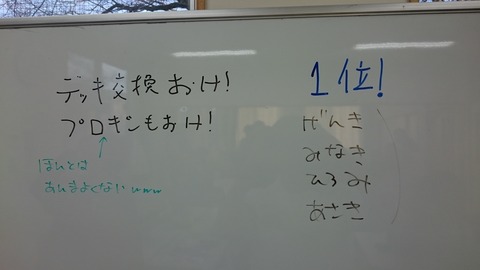 デッキ交換おけ!
プロキシもおけ!
ほんとは
あんまよくないwww
1位!
げんき
みなき
ひろみ
あさき